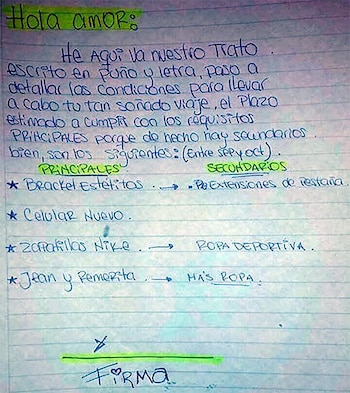 Hola amor:
He Aqui va nuestro Trato.
escrito en puño y letra, paso a
detallar las condiciones para llevar
a cabo tu tan soñado viaje, el plazo
estimado a cumplir con los requisitos
PRINCIPALES porque de hecho hay secundarios.
bien, son los siguientes: (Entre SEP y oct).
PRINCIPALES SECUNDARIOS
★ Bracket Esteticos → EXTENSIONES de Pestaña
★ Celular Nuevo.
★ Zapatillas Nike → ROPA DEPORTIVA.
★ Jean y Remerita. → MÁS ROPA.
Firma